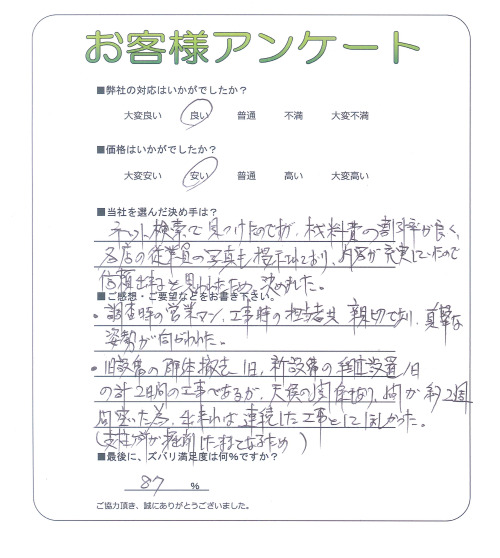 お客様アンケート
■弊社の対応はいかがでしたか？
大変良い 良い 普通 不満 大変不満
■価格はいかがでしたか？
大変安い 安い 普通 高い 大変高い
■当社を選んだ決め手は？
ネット検索で見つけたのですが、材料費の割引率が良く、
各店の従業員の写真も掲示されており、内容が充実していたので
信頼出来ると思われたため、決めました。
■ご感想・ご要望などをお書き下さい。
・調査時の営業マン、工事時の担当者共 親切であり、真摯な
姿勢が向がわれた。
・旧設備の解体撤去 1日、新設備の組立設置 1日
の計2日間の工事であるが、天候の関係もあり、間が約2週
間空いた為、出来れば連続した工事としてほしかった。
(支柱穴が掘削したままになるため)
■最後に、ズバリ満足度は何%ですか？
87 %
ご協力頂き、誠にありがとうございました。